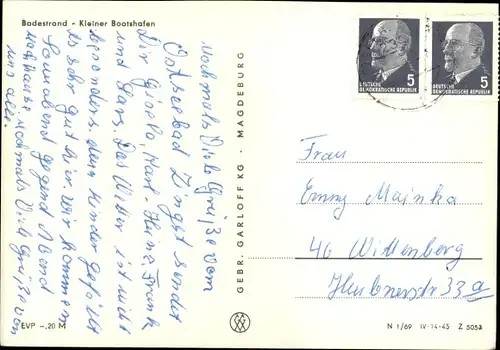 Badestrand - Kleiner Bootshafen
Nochmals Viele Grüße vom
Ostseebad Zingst sendet
Dir Gisela, Karl-Heinz, Frank
und Lars. Das Wetter ist nicht
besonders. dem Kinder gefällt
es sehr gut hier. Wir kommen
Sonnabend gegend Abend
nach hause. Nochmals Viele Grüße von
uns alle.
EVP -.20 M
GEBR. GARLOFF KG · MAGDEBURG
5
DEUTSCHE
DEMOKRATISCHE REPUBLIK
5
DEUTSCHE
DEMOKRATISCHE REPUBLIK
Frau
Emmy Mainka
46 Wittenberg
Heubnerstr 33a
N 1/69 IV-14-45 Z 5053